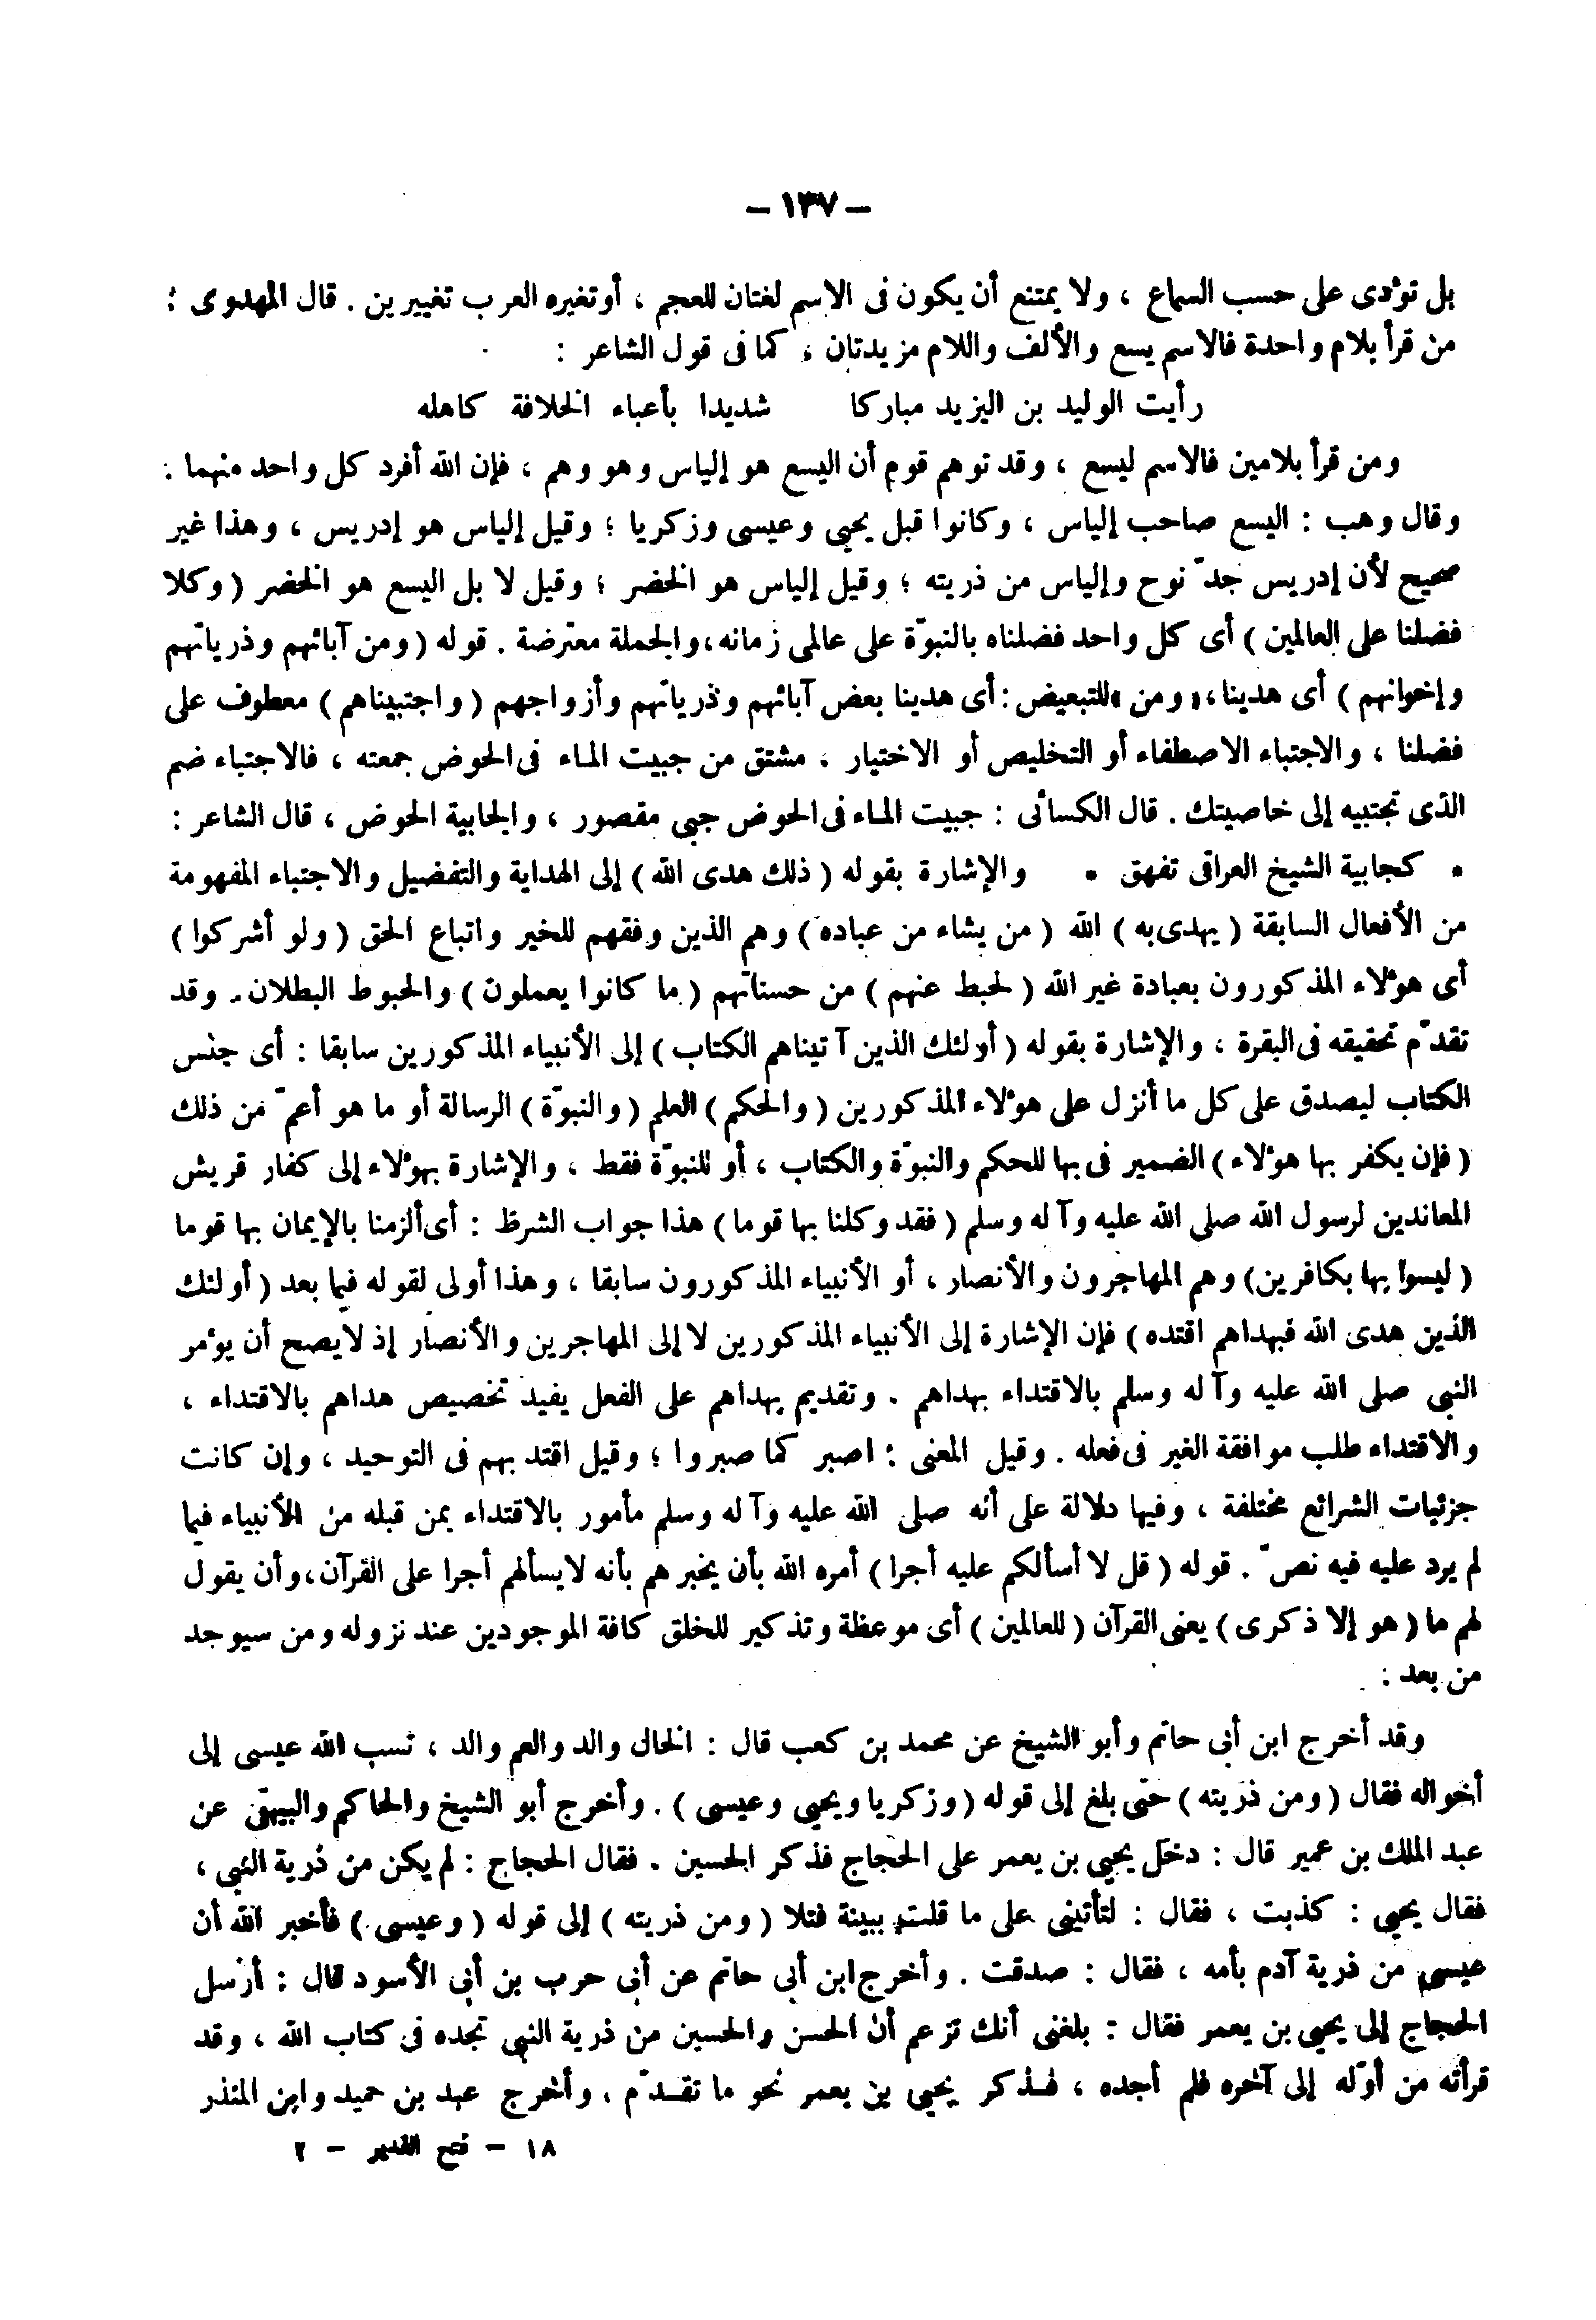 – ١٣٧ –
بل تؤدى على حسب السماع ، ولا يمتنع أن يكون فى الاسم لغتان للعجم ، أوتغيره العرب تغييرين . قال المهدوى :
من قرأ بلام واحدة فالاسم يسع والألف واللام مزيدتان ، كما فى قول الشاعر :
رأيت الوليد بن اليزيد مباركا شديدا بأعباء الخلافة كاهله
ومن قرأ بلامين فالاسم ليسع ، وقد توهم قوم أن اليسع هو إلياس وهو وهم ، فإن الله أفرد كل واحد منهما .
وقال وهب : اليسع صاحب إلياس ، وكانوا قبل يحيى وعيسى وزكريا ؛ وقيل إلياس هو إدريس ، وهذا غير
صحيح لأن إدريس جدّ نوح وإلياس من ذريته ؛ وقيل إلياس هو الخضر ؛ وقيل لا بل اليسع هو الخضر (وكلا
فضلنا على العالمين ) أى كل واحد فضلناه بالنبوّة على عالمى زمانه، والجملة معترضة . قوله ( ومن آبائهم وذرياتهم
وإخوانهم ) أى هدينا، «ومن» للتبعيض : أى هدينا بعض آبائهم وذرياتهم وأزواجهم (واجتبيناهم ) معطوف على
فضلنا ، والاجتباء الاصطفاء أو التخليص أو الاختيار ، مشتق من جبيت الماء فى الحوض جمعته ، فالاجتباء ضم
الذى تجتبيه إلى خاصيتك . قال الكسائى : جبيت الماء فى الحوض جبى مقصور ، والجابية الحوض ، قال الشاعر :
* كجابية الشيخ العراقى تفهق * والإشارة بقوله ( ذلك هدى الله ) إلى الهداية والتفضيل والاجتباء المفهومة
من الأفعال السابقة ( يهدى به ) الله ( من يشاء من عباده ) وهم الذين وفقهم للخير واتباع الحق ( ولو أشركوا )
أى هؤلاء المذكورون بعبادة غير الله ( لحبط عنهم ) من حسناتهم ( ما كانوا يعملون ) والحبوط البطلان . وقد
تقدّم تحقيقه فى البقرة ، والإشارة بقوله ( أولئك الذين آتيناهم الكتاب ) إلى الأنبياء المذكورين سابقا : أى جنس
الكتاب ليصدق على كل ما أنزل على هؤلاء المذكورين ( والحكم ) العلم ( والنبوّة ) الرسالة أو ما هو أعمّ من ذلك
( فإن يكفر بها هؤلاء ) الضمير فى بها للحكم والنبوّة والكتاب ، أو للنبوّة فقط ، والإشارة بهؤلاء إلى كفار قريش
المعاندين لرسول الله صلى الله عليه وآله وسلم ( فقد وكلنا بها قوما ) هذا جواب الشرط : أى ألزمنا بالإيمان بها قوما
( ليسوا بها بكافرين ) وهم المهاجرون والأنصار ، أو الأنبياء المذكورون سابقا ، وهذا أولى لقوله فيما بعد ( أولئك
الذين هدى الله فبهداهم اقتده ) فإن الإشارة إلى الأنبياء المذكورين لا إلى المهاجرين والأنصار إذ لايصح أن يؤمر
النبى صلى الله عليه وآله وسلم بالاقتداء بهداهم . وتقديم بهداهم على الفعل يفيد تخصيص هداهم بالاقتداء ،
والاقتداء طلب موافقة الغير فى فعله . وقيل المعنى : اصبر كما صبروا ؛ وقيل اقتد بهم فى التوحيد ، وإن كانت
جزئيات الشرائع مختلفة ، وفيها دلالة على أنه صلى الله عليه وآله وسلم مأمور بالاقتداء بمن قبله من الأنبياء فيما
لم يرد عليه فيه نصّ . قوله ( قل لا أسألكم عليه أجرا ) أمره الله بأن يخبرهم بأنه لايسألهم أجرا على القرآن، وأن يقول
لهم ما ( هو إلا ذكرى ) يعنى القرآن ( للعالمين ) أى موعظة وتذكير للخلق كافة الموجودين عند نزوله ومن سيوجد
من بعد :
وقد أخرج ابن أبى حاتم وأبو الشيخ عن محمد بن كعب قال : الخال والد والعم والد ، نسب الله عيسى إلى
أخواله فقال ( ومن ذريته ) حتى بلغ إلى قوله ( وزكريا ويحيى وعيسى ) . وأخرج أبو الشيخ والحاكم والبيهقى عن
عبد الملك بن عمير قال : دخل يحيى بن يعمر على الحجاج فذكر الحسين . فقال الحجاج : لم يكن من ذرية النبى ،
فقال يحيى : كذبت ، فقال : لتأتينى على ما قلت ببينة فتلا ( ومن ذريته ) إلى قوله ( وعيسى ) فأخبر الله أن
عيسى من ذرية آدم بأمه ، فقال : صدقت . وأخرج ابن أبى حاتم عن أبى حرب بن أبى الأسود قال : أرسل
الحجاج إلى يحيى بن يعمر فقال : بلغنى أنك تزعم أن الحسن والحسين من ذرية النبى تجده فى كتاب الله ، وقد
قرأته من أوّله إلى آخره فلم أجده ، فذكر يحيى بن يعمر نحو ما تقدّم . وأخرج عبد بن حميد وابن المنذر
١٨ – فتح القدير – ٢